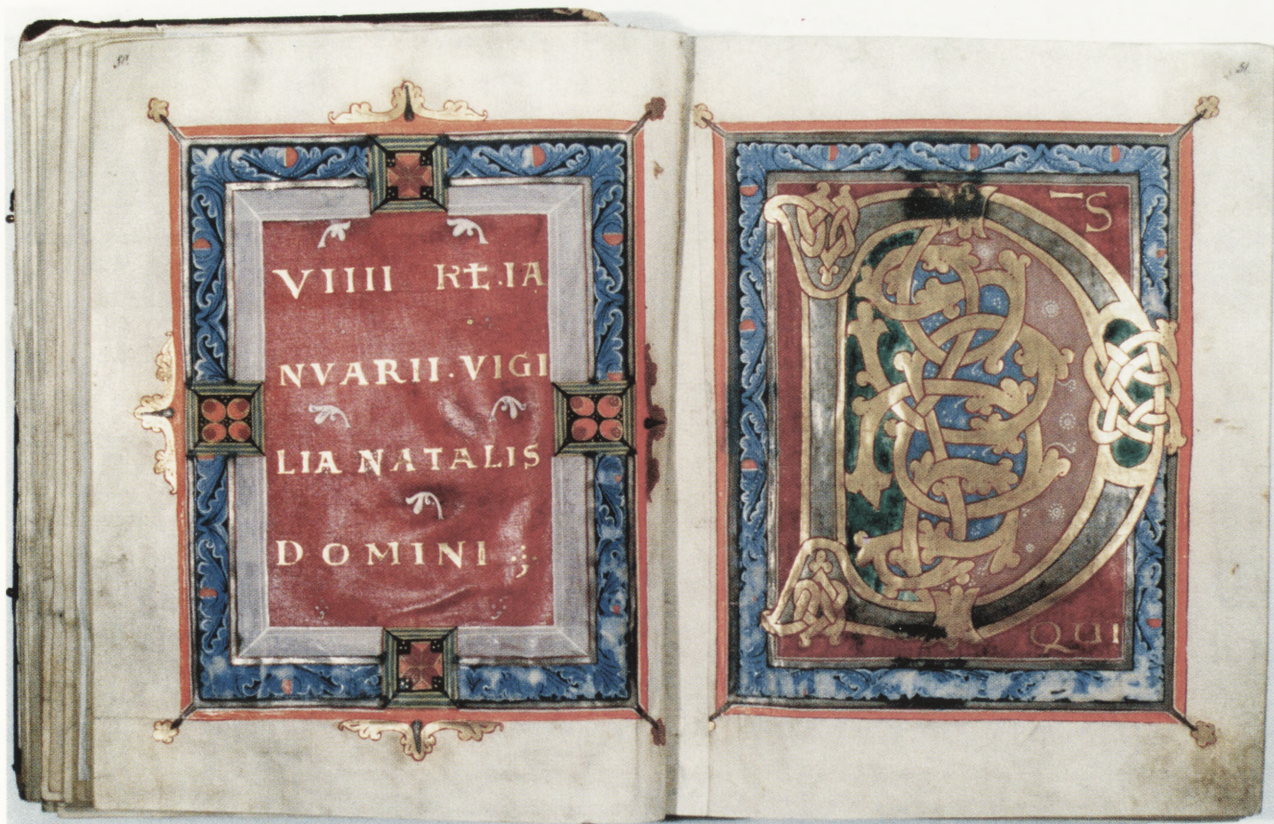 VIIII KL.IA
NVARII.VIGI
LIA NATALIS
DOMINI
D S
QUI